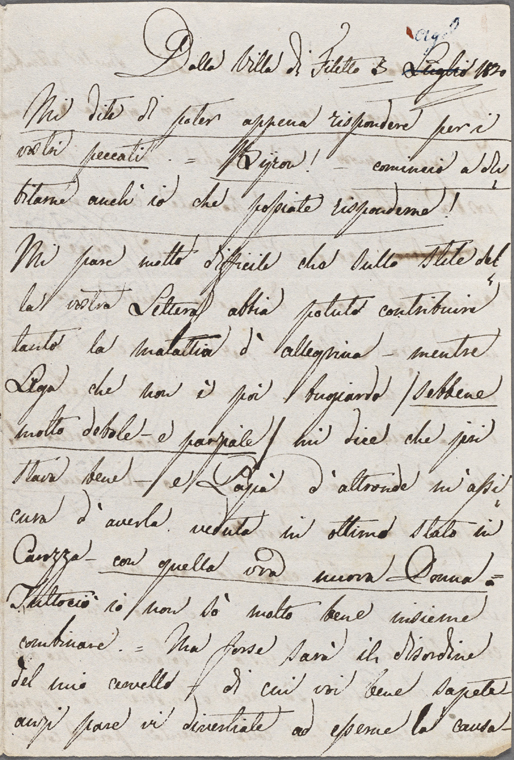 Ago
Dalla Villa di Filetto 3 Luglio 1820
Mi dite di poter appena rispondere per i
vostri peccati. = Byron! - comincio a du
bitarne anch' io che possiate risponderne!
Mi pare molto difficile che sullo stile del
la vostra Lettera abbia potuto contribuire
tanto la malattia d' allegrina - mentre
Lega che non è poi bugiardo /sebbene
molto debole e parziale/ mi dice che jeri
stava bene - e Papà d'altronde m' assi
cura d' averla veduta in ottimo stato in
Carozza - con quella vra nuova Donna =
Tuttociò io non sò molto bene insieme
combinare. = Ma forse sarà il disordine
del mio cervello - di cui voi bene sapete
anzi pare vi divertiate ad esserne la causa -